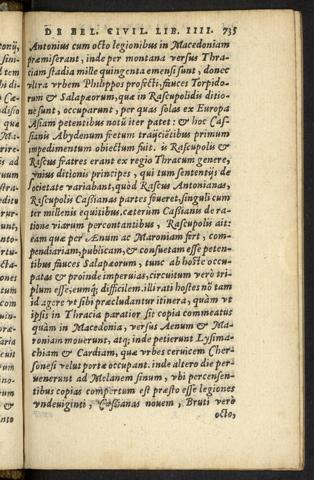 DE BEL. CIVIL. LIB. IIII. 735
Antonius cum octo legionibus in Macedoniam
præmiserant, inde per montana versus Thra
ciam stadia mille quingenta emensi sunt, donec
vltra vrbem Philippos profecti, fauces Torpido-
rum & Salapæorum, quæ in Rascupolidis ditio-
ne sunt, occuparunt, per quas solas ex Europa
Asiam petentibus notū iter patet: & hoc Cas-
sianis Abydenum fretum traiectibus primum
impedimentum obiectum fuit. is Rascupolis &
Rascus fratres erant ex regio Thracum genere,
vnius ditionis principes, qui tum sententijs de
societate variabant, quòd Rascus Antonianas,
Rascupolis Cassianas partes foueret, singuli cum
ter millenis equitibus. cæterùm Cassianis de ra-
tione viarum percontantibus, Rascupolis ait:
eam quæ per Ænum ac Maroniam fert, com-
pendiariam, publicam, & consuetam esse peten-
tibus fauces Salapæorum, tunc ab hoste occu-
patas & proinde imperuias, circuitum verò tri-
plum esse, eumq; difficilem. illi rati hostes nō tam
id agere vt sibi præcludantur itinera, quàm vt
ipsis in Thracia paratior sit copia commeatus
quàm in Macedonia, versus Aenum & Ma-
roniam mouerunt, atq; inde petierunt Lysima-
chiam & Cardiam, quæ vrbes ceruicem Cher-
sonesi velut portæ occupant. inde altero die per
uenerunt ad Melanem sinum, vbi percensen-
tibus copias compertum est præsto esse legiones
vndeuiginti, Cassianas nouem, Bruti verò
octo,